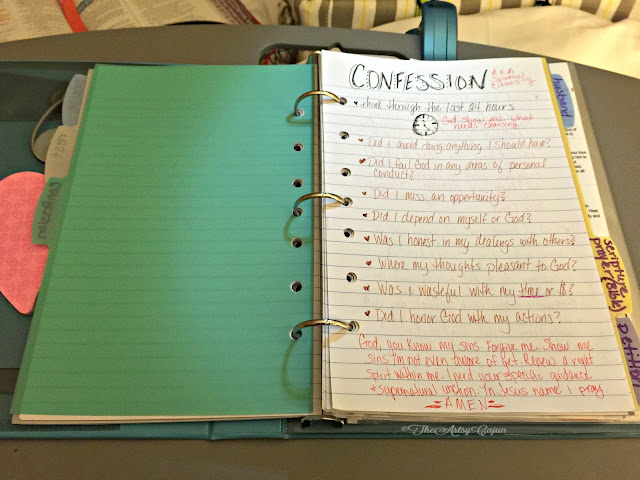 CONFESSION
A.K.A
Spiritual
Cleansing
Think through the last 24 hours
God, show me what
needs cleansing
Did I avoid doing anything I should have?
Did I fail God in any areas of personal
conduct?
Did I miss an opportunity?
Did I depend on myself or God?
Was I honest in my dealings with others?
Where my thoughts pleasant to God?
Was I wasteful with my time or $?
Did I honor God with my actions?
God, you know my sins. Forgive me. Show me
sins I'm not even aware of yet. Renew a right
spirit within me. I need your specific guidance
+ supernatural unction. In Jesus name I pray
=AMEN=
husband
scripture
prayer (Bible)
petition
©TheArtsyCajun